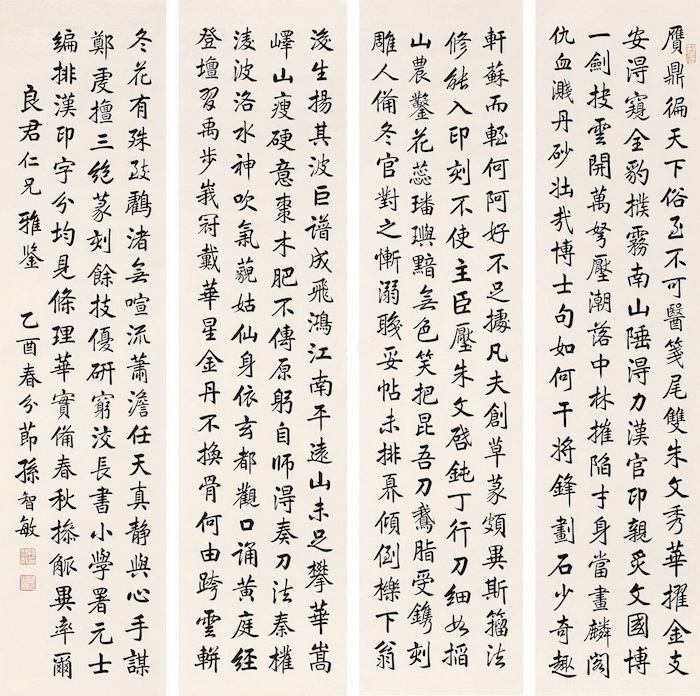 贋鼎徧天下俗至不可醫箋尾雙朱文秀華擢金支
安得窺全豹撲霧南山陲得力漢官印親炙文國博
一劍技雲開萬弩壓潮落中林摧陷才身當畫麟閣
仇血濺丹砂壯哉博士句如何干將鋒劃石少奇趣
軒蘇而輊何阿好不足據凡夫創草篆頗異斯籀法
修能入印刻不使主臣壓朱文啓鈍丁行刀細如掐
山農鑿花蕊璠璵黯無色笑把昆吾刀鵞脂受鎸刻
雕人備冬官對之慚溺職妥帖未排奡傾倒櫟下翁
浚生揚其波巨譜成飛鴻江南平遠山未足攀華嵩
嶧山瘦硬意棗木肥不傳原躬自師得奏刀法秦權
淩波洛水神吹氣藐姑仙身依玄都觀口誦黃庭經
登壇習禹步峩冠戴華星金丹不換骨何由跨雲軿
冬花有殊致鸛渚無喧流蕭澹任天真靜與心手謀
鄭虔擅三絶篆刻餘技優研窮洨長書小學署元士
編排漢印字分均見條理華實備春秋摻觚異率爾
良君仁兄雅鑒 乙酉春分節孫智敏